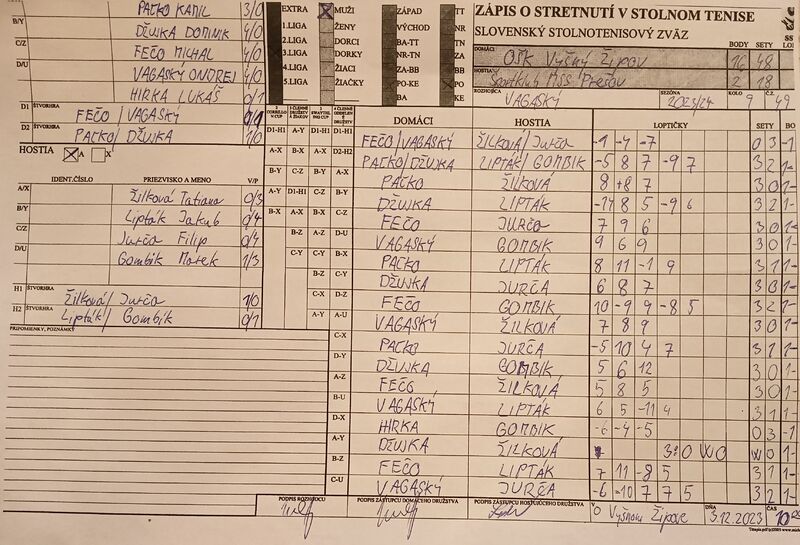 ZÁPIS O STRETNUTÍ V STOLNOM TENISE
SLOVENSKÝ STOLNOTENISOVÝ ZVÄZ
EXTRA MUŽI ZÁPAD TT
1.LIGA ŽENY VÝCHOD NR
2.LIGA DORCI BA-TT TN
3.LIGA DORKY NR-TN ZA
4.LIGA ŽIACI ZA-BB BB
5.LIGA ŽIAČKY PO-KE PO
BA KE
DOMÁCI OŠK Vyšný Žipov BODY 16 SETY 48
HOSTIA Sportklub MŠŠ Prešov 2 18
ROZHODCA VAGASKÝ SEZÓNA 2023/24 KOLO 9 Č.Z. 49
PAĽKO KAMIL 3/0
B/Y DŽUJKA DOMINIK 4/0
C/Z FEČO MICHAL 4/0
D/U VAGASKÝ ONDREJ 4/0
HIRKA LUKÁŠ 0/1
D1 ŠTVORHRA FEČO / VAGASKÝ 0/1
D2 ŠTVORHRA PAĽKO / DŽUJKA 1/0
HOSTIA A X
IDENT.ČÍSLO PRIEZVISKO A MENO V/P
A/X Žilková Tatiana 0/3
B/Y Lipták Jakub 0/4
C/Z Jurča Filip 0/4
D/U Gombik Marek 1/3
H1 ŠTVORHRA Žilková / Jurča 1/0
H2 ŠTVORHRA Lipták / Gombik 0/1
PRIPOMIENKY, POZNÁMKY
DOMÁCI HOSTIA LOPTIČKY SETY BO
D1-H1 A-Y D1-H1 D1-H1 FEČO / VAGASKÝ ŽILKOVÁ / Jurča -1 -4 -7 0 3 -1
A-X B-X A-X D2-H2 PAĽKO / DŽUJKA LIPTÁK / GOMBIK -5 8 7 -9 7 3 2 1-
B-Y C-Z B-Y A-X PAĽKO ŽILKOVÁ 8 +8 7 3 0 1-
A-Y D1-H1 C-Z B-Y DŽUJKA LIPTÁK -14 8 5 -9 6 3 2 1-
B-X A-X B-X C-Z FEČO JURČA 7 9 6 3 0 1-
B-Z A-Z D-U VAGASKÝ GOMBIK 9 6 9 3 0 1-
C-Y C-Y B-X PAĽKO LIPTÁK 8 11 -1 9 3 1 1-
B-Z C-Y DŽUJKA JURČA 6 8 7 3 0 1-
C-X D-Z FEČO GOMBIK 10 -9 9 -8 5 3 2 1-
A-Y A-U VAGASKÝ ŽILKOVÁ 7 8 9 3 0 1-
C-X PAĽKO JURČA -5 10 4 7 3 1 1-
D-Y DŽUJKA GOMBIK 5 6 12 3 0 1-
A-Z FEČO ŽILKOVÁ 5 8 5 3 0 1-
B-U VAGASKÝ LIPTÁK 6 5 -11 4 3 1 1-
D-X HIRKA GOMBIK -6 -4 -5 0 3 -1
A-Y DŽUJKA ŽILKOVÁ 3:0 WO WO 1-
B-Z FEČO LIPTÁK 7 11 -8 5 3 1 1-
C-U VAGASKÝ JURČA -6 -10 7 7 5 3 2 1-
PODPIS ROZHODCU PODPIS ZÁSTUPCU DOMÁCEHO DRUŽSTVA PODPIS ZÁSTUPCU HOSŤUJÚCEHO DRUŽSTVA Vyšnom Žipove DŇA 3.12.2023 ČAS 10